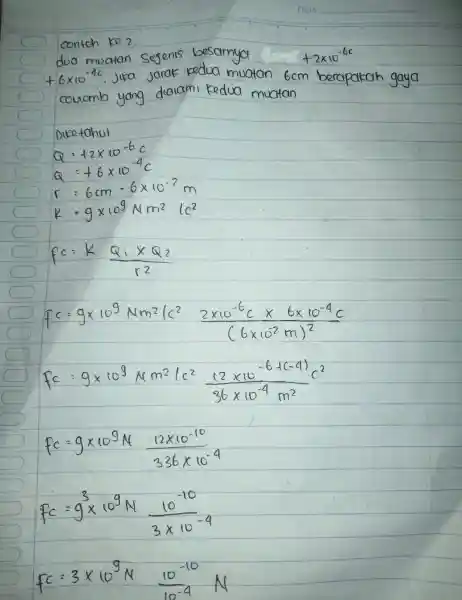 contoh ke 2
dua muatan sejenis besarnya +2x10⁻⁶ᶜ
+6x10⁻⁴ᶜ. Jika jarak kedua muatan 6cm berapakah gaya
coulomb yang dialami kedua muatan
Diketahui
Q = +2 x 10⁻⁶ c
Q = +6 x 10⁻⁴ c
r = 6cm = 6 x 10⁻² m
K = 9 x 10⁹ N m² /c²
Fc = K (Q₁ x Q₂) / r²
Fc = 9x 10⁹ Nm²/c² (2x10⁻⁶c x 6x10⁻⁴c) / (6x10⁻² m)²
Fc = 9 x 10⁹ N m² /c² (12 x10⁻⁶⁺⁽⁻⁴⁾ c²) / (36 x 10⁻⁴ m²)
Fc = 9 x 10⁹ N (12x10⁻¹⁰) / (336 x 10⁻⁴)
3
Fc = 9 x 10⁹ N 10⁻¹⁰ / (3 x 10⁻⁴)
Fc = 3 x 10⁹ N 10⁻¹⁰ / 10⁻⁴ N